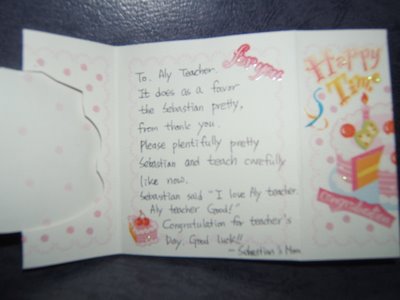 For you
To. Aly Teacher.
It does as a favor
the Sebastian pretty,
from thank you.
Please plentifully pretty
Sebastian and teach carefully
like now.
Sebastian said "I love Aly teacher.
Aly teacher Good!"
Congratulation for teacher's
Day. Good luck!!
- Sebastian's Mom
Happy
Time
Congratulations